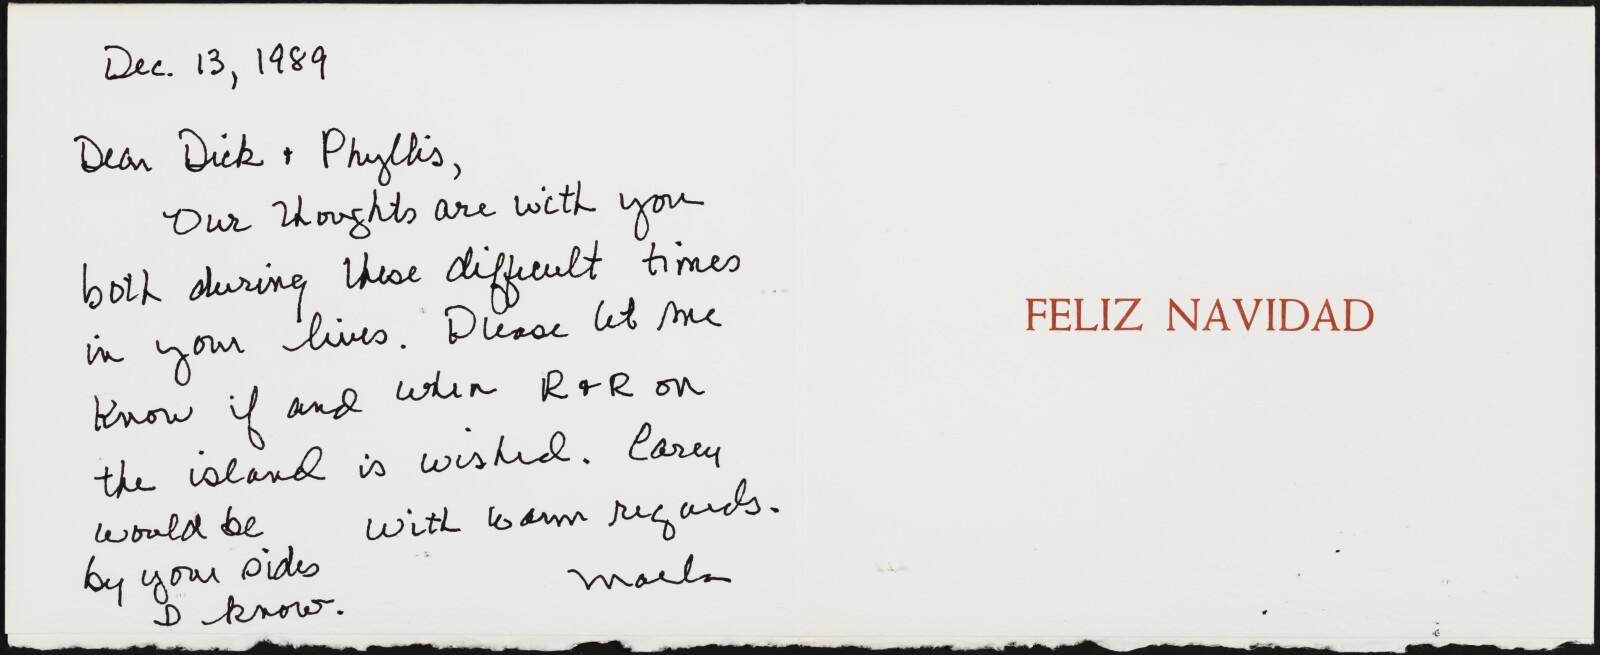 Dec. 13, 1989
Dear Dick + Phyllis,
Our thoughts are with you
both during these difficult times
in your lives. Please let me
know if and when R + R on
the island is wished. Carey
would be
by your sides
I know.
with warm regards.
Marla
FELIZ NAVIDAD